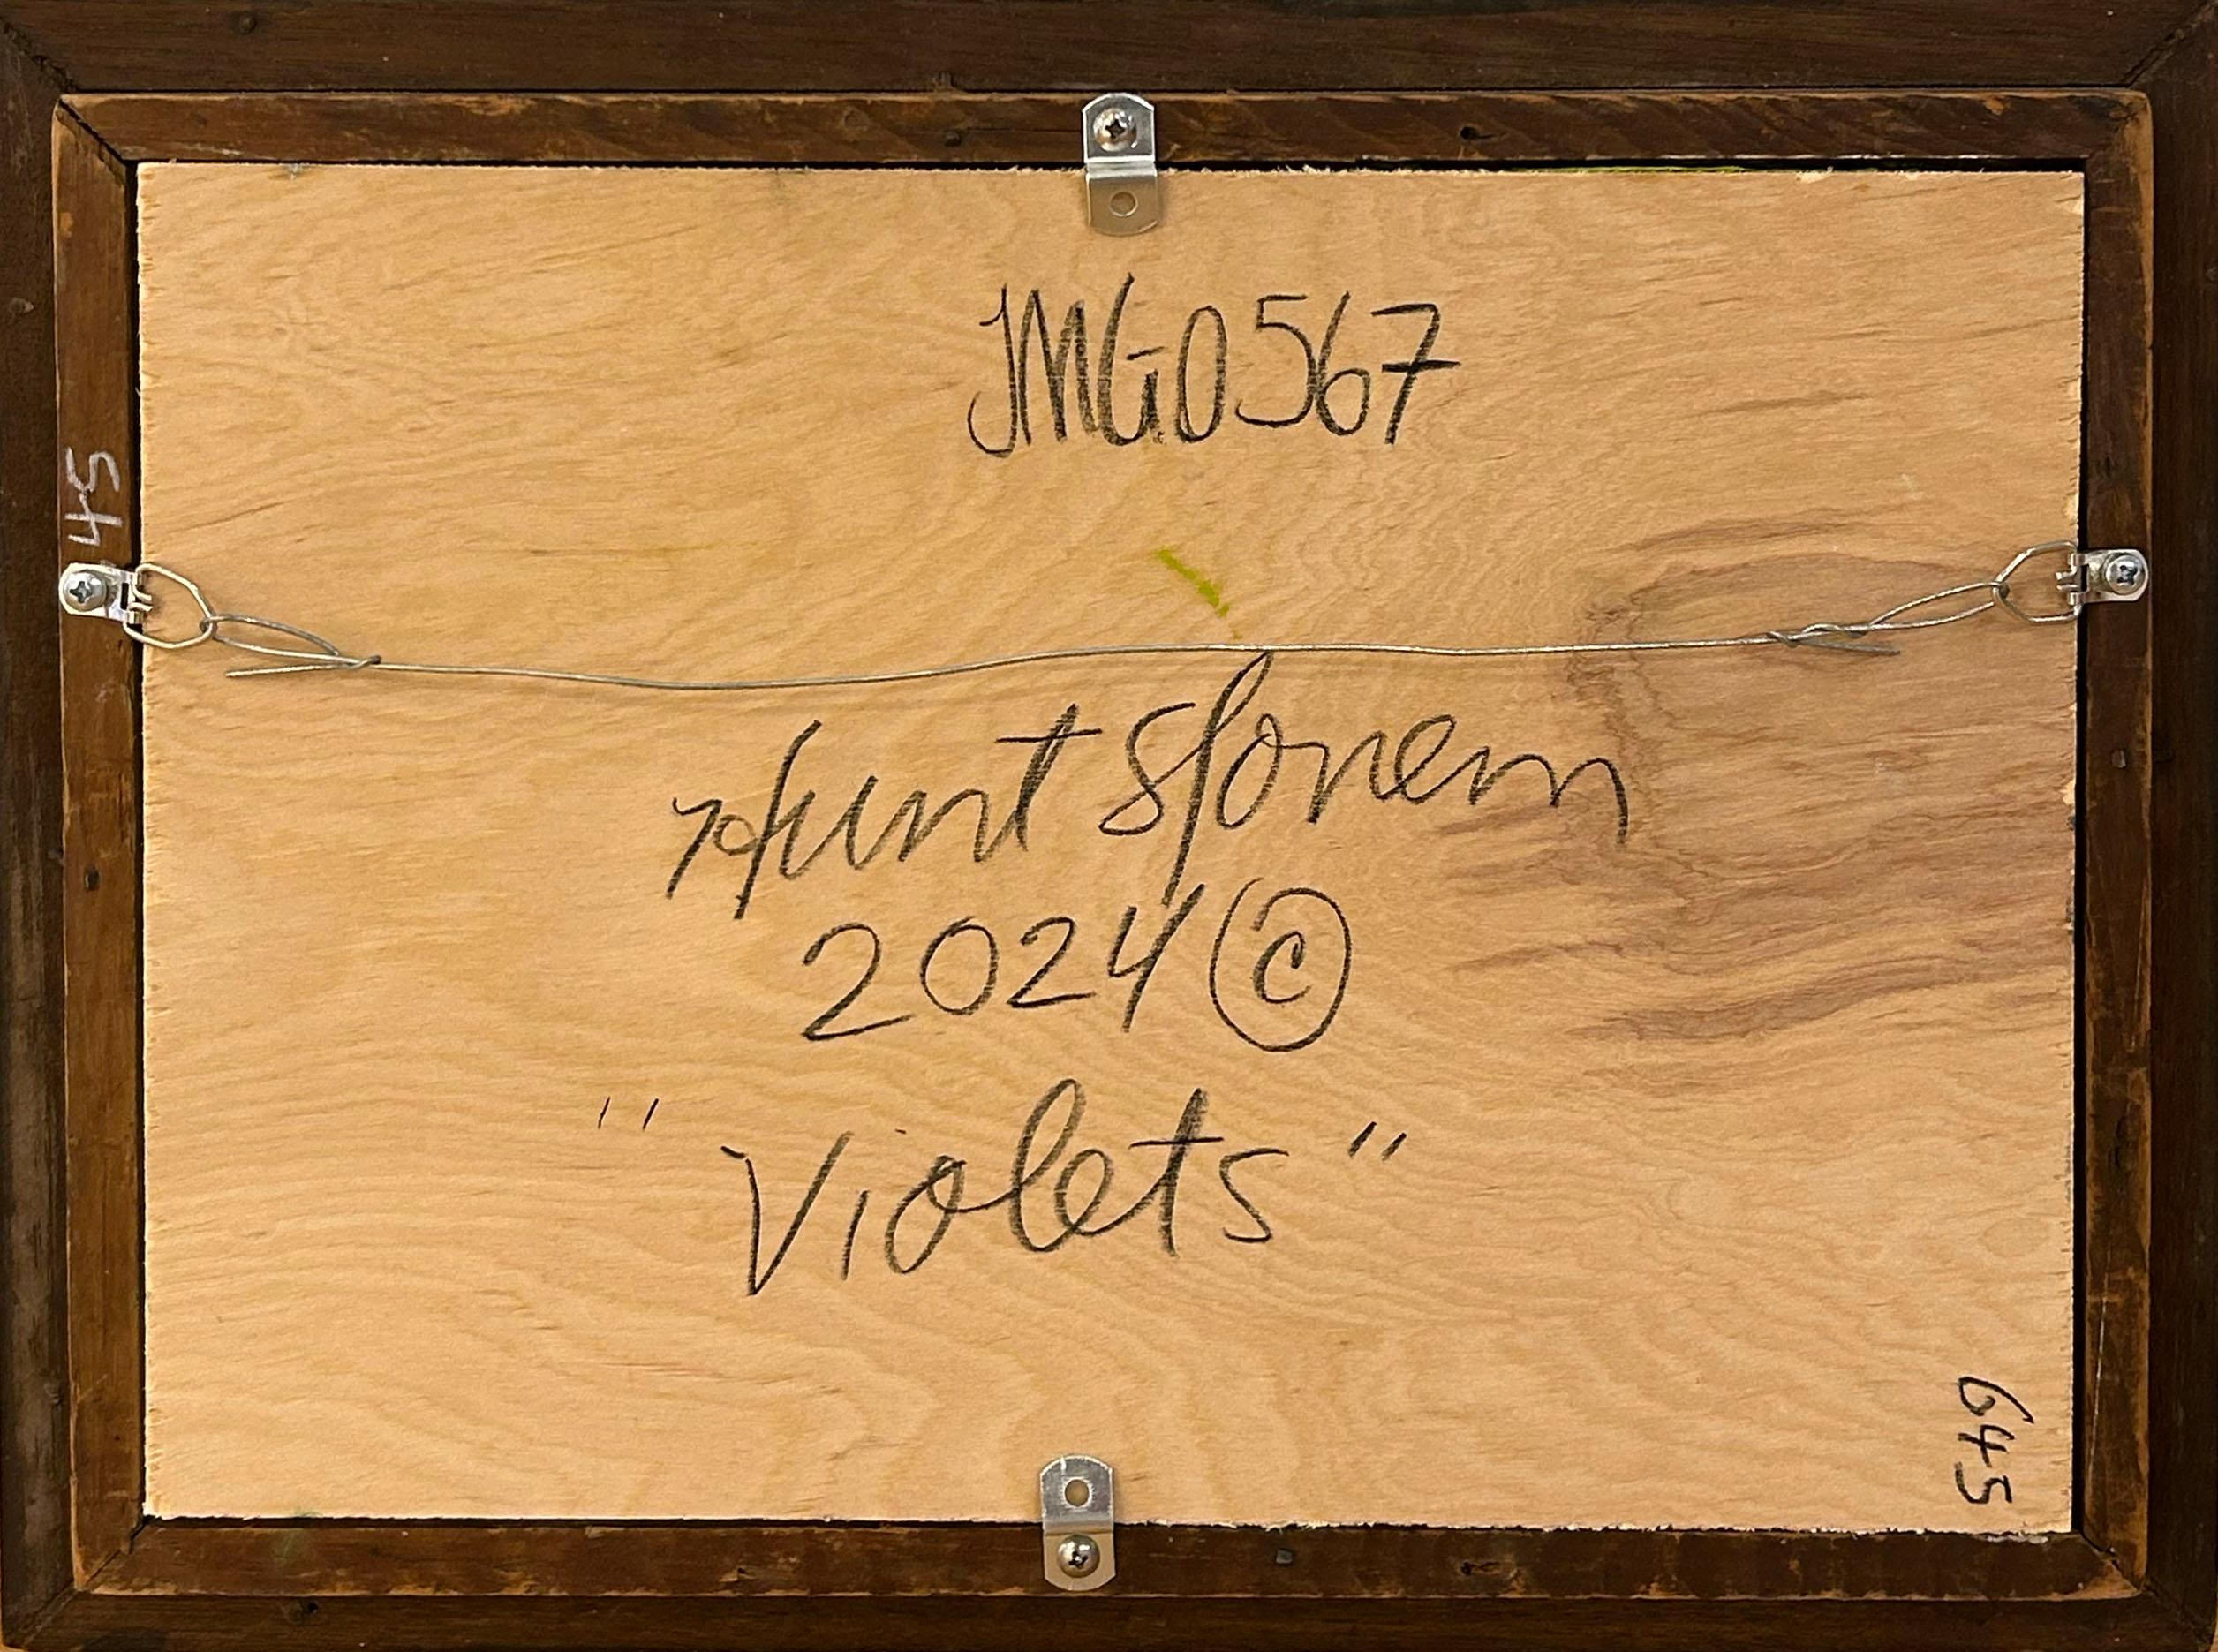 JMG0567
45
Hunt Slonem
2024 ©
"Violets"
645